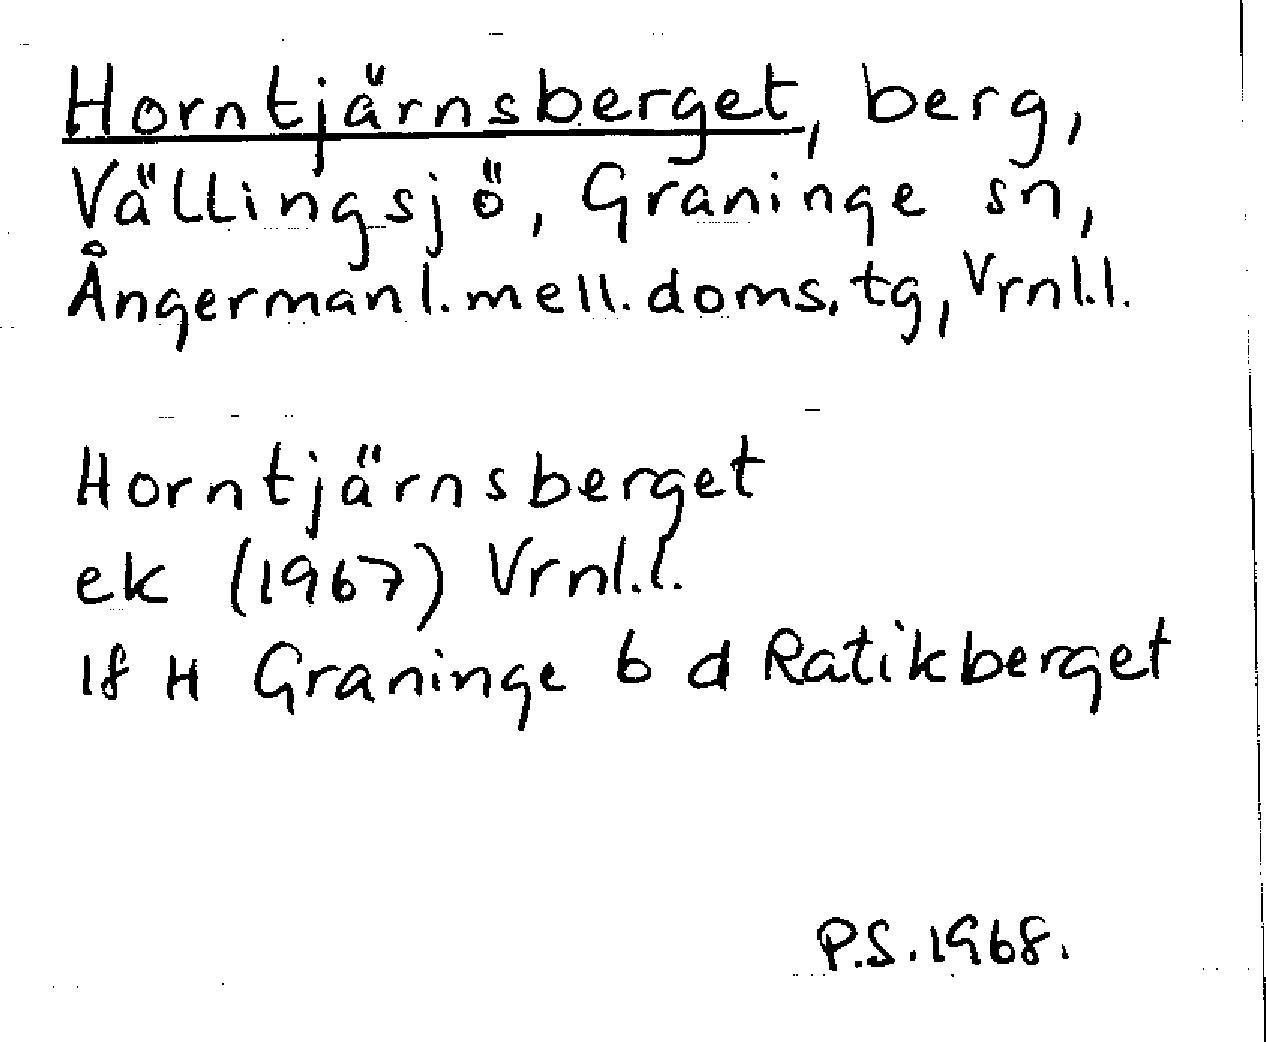 Horntjärnsberget, berg,
Vällingsjö, Graninge sn,
Ångermanl. mell. doms. tg, Vrnl.l.
Horntjärnsberget
ek (1967) Vrnl.l.
lf H Graninge b d Ratikberget
P.S. 1968.